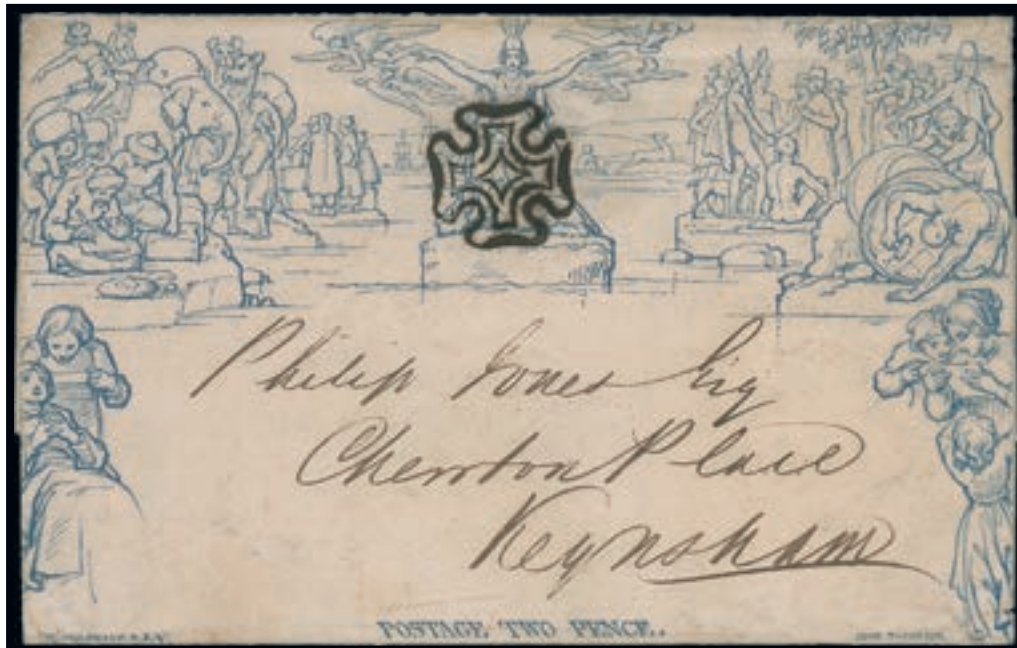 Philip Jones Esq
Chewton Place
Keynsham
POSTAGE TWO PENCE.